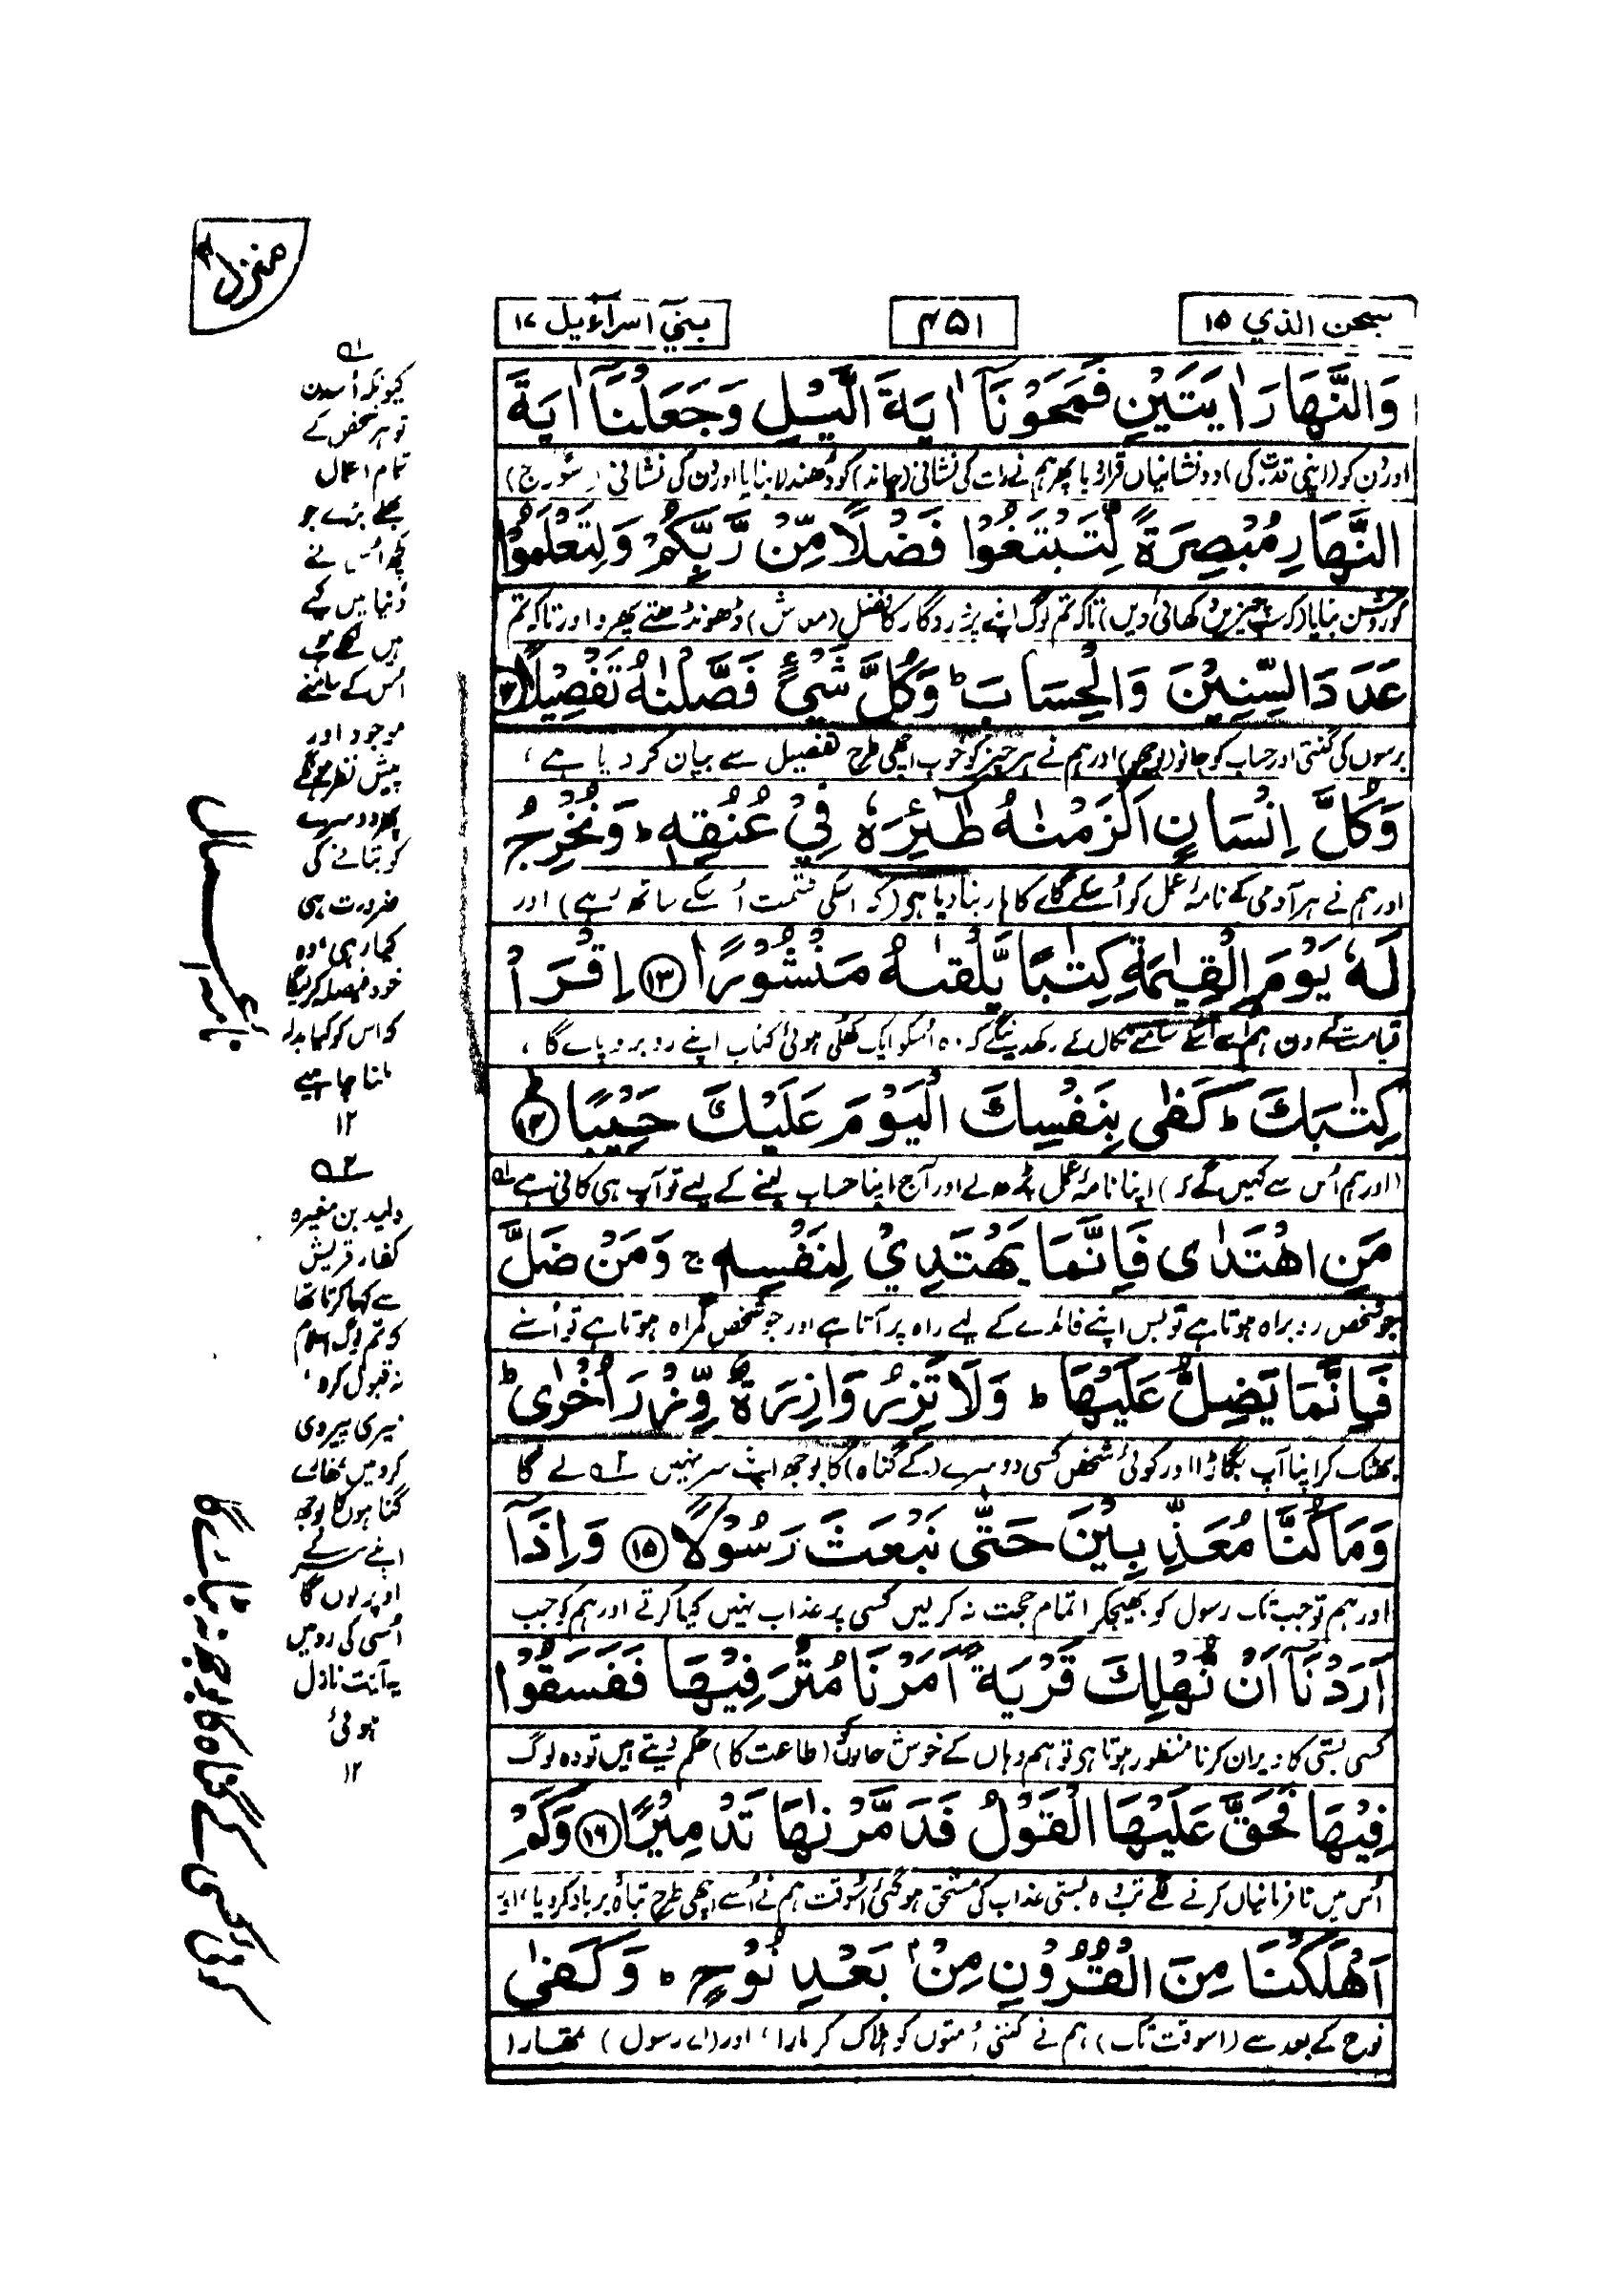 سبحن الذي ۱۵
۴۵۱
بني اسرآءيل ۱۷
منزل ۴
وَالنَّهَارَ اٰيَتَيْنِ فَمَحَوْنَآ اٰيَةَ الَّيْلِ وَجَعَلْنَآ اٰيَةَ
اور دن کو (اپنی قدرت کی) دو نشانیاں قرار دیا پھر ہم نے رات کی نشانی (چاند) کو دُھندلا بنایا اور دن کی نشانی (سورج)
النَّهَارِ مُبْصِرَةً لِّتَبْتَغُوْا فَضْلًا مِّنْ رَّبِّكُمْ وَلِتَعْلَمُوْا
کو روشن بنایا (کہ سب چیزیں دکھائی دیں) تاکہ تم لوگ اپنے پروردگار کا فضل (معاش) ڈھونڈھتے پھرو اور تاکہ تم
عَدَدَ السِّنِيْنَ وَالْحِسَابَ ؕ وَكُلَّ شَيْءٍ فَصَّلْنٰهُ تَفْصِيْلًا ⑫
برسوں کی گنتی اور حساب کو جانو (بوجھو) اور ہم نے ہر چیز کو خوب اچھی طرح تفصیل سے بیان کر دیا ہے،
وَكُلَّ اِنْسَانٍ اَلْزَمْنٰهُ طٰٓئِرَهٗ فِيْ عُنُقِهٖ ؕ وَنُخْرِجُ
اور ہم نے ہر آدمی کے نامۂ عمل کو اُسکے گلے کا ہار بنا دیا ہی (کہ اسکی قسمت اُسکے ساتھ رہے) اور
لَهٗ يَوْمَ الْقِيٰمَةِ كِتٰبًا يَّلْقٰىهُ مَنْشُوْرًا ⑬ اِقْرَاْ
قیامت کے دن ہم اُسے اُسکے سامنے نکال کے رکھ دینگے کہ وہ اُسکو ایک کھلی ہوئی کتاب اپنے روبرو پائے گا،
كِتٰبَكَ ؕ كَفٰى بِنَفْسِكَ الْيَوْمَ عَلَيْكَ حَسِيْبًا ⑭ ؕ
(اور ہم اُس سے کہیں گے کہ) اپنا نامۂ عمل پڑھ لے اور آج اپنا حساب لینے کے لیے تو آپ ہی کافی ہے ؎۱
مَنِ اهْتَدٰى فَاِنَّمَا يَهْتَدِيْ لِنَفْسِهٖ ۚ وَمَنْ ضَلَّ
جو شخص روبراہ ہوتا ہے تو بس اپنے فائدے کے لیے راہ پر آتا ہے اور جو شخص گمراہ ہوتا ہے تو اُسنے
فَاِنَّمَا يَضِلُّ عَلَيْهَا ؕ وَلَا تَزِرُ وَازِرَةٌ وِّزْرَ اُخْرٰى ؕ
بھٹک کر اپنا آپ بگاڑا اور کوئی شخص کسی دوسرے (کے گناہ) کا بوجھ اپنے سر نہیں ؎۲ لے گا
وَمَا كُنَّا مُعَذِّبِيْنَ حَتّٰى نَبْعَثَ رَسُوْلًا ⑮ وَاِذَآ
اور ہم تو جب تک رسول کو بھیجکر اتمام حجت نہ کر لیں کسی پر عذاب نہیں کیا کرتے اور ہم کو جب
اَرَدْنَآ اَنْ نُّهْلِكَ قَرْيَةً اَمَرْنَا مُتْرَفِيْهَا فَفَسَقُوْا
کسی بستی کا ویران کرنا منظور ہوتا ہی تو ہم وہاں کے خوش حالوں کو (طاعت کا) حکم دیتے ہیں تو وہ لوگ
فِيْهَا فَحَقَّ عَلَيْهَا الْقَوْلُ فَدَمَّرْنٰهَا تَدْمِيْرًا ⑯ وَكَمْ
اُس میں نافرمانیاں کرنے لگے تب وہ بستی عذاب کی مستحق ہو گئی اُسوقت ہم نے اُسے اچھی طرح تباہ برباد کر دیا، اور
اَهْلَكْنَا مِنَ الْقُرُوْنِ مِنْۢ بَعْدِ نُوْحٍ ؕ وَكَفٰى
نوح کے بعد سے (اسوقت تک) ہم نے کتنی اُمتوں کو ہلاک کر مارا، اور (اے رسول) تمھارا
؎۱
کیونکہ اُسدن
تو ہر شخص کے
تمام اعمال
بھلے بُرے جو
کچھ اُس نے
دُنیا میں کیے
ہیں لکھے ہوئے
اُس کے سامنے
موجود اور
پیش نظر ہونگے
پھر دوسرے
کو بتانے کی
ضرورت ہی
کیا رہی، وہ
خود فیصلہ کر لیگا
کہ اس کو کیا بدلہ
ملنا چاہیے
۱۲
؎۲
ولید بن مغیرہ
کفار قریش
سے کہا کرتا تھا
کہ تم لوگ اسلام
نہ قبول کرو،
میری پیروی
کرو میں تمھارے
گناہوں کا بوجھ
اپنے سر کے
اوپر لوں گا
اُسی کی رد میں
یہ آیت نازل
ہوئی
۱۲
نامۂ اعمال
کوئی کسی کے گناہ کا بوجھ نہ اٹھائے گا